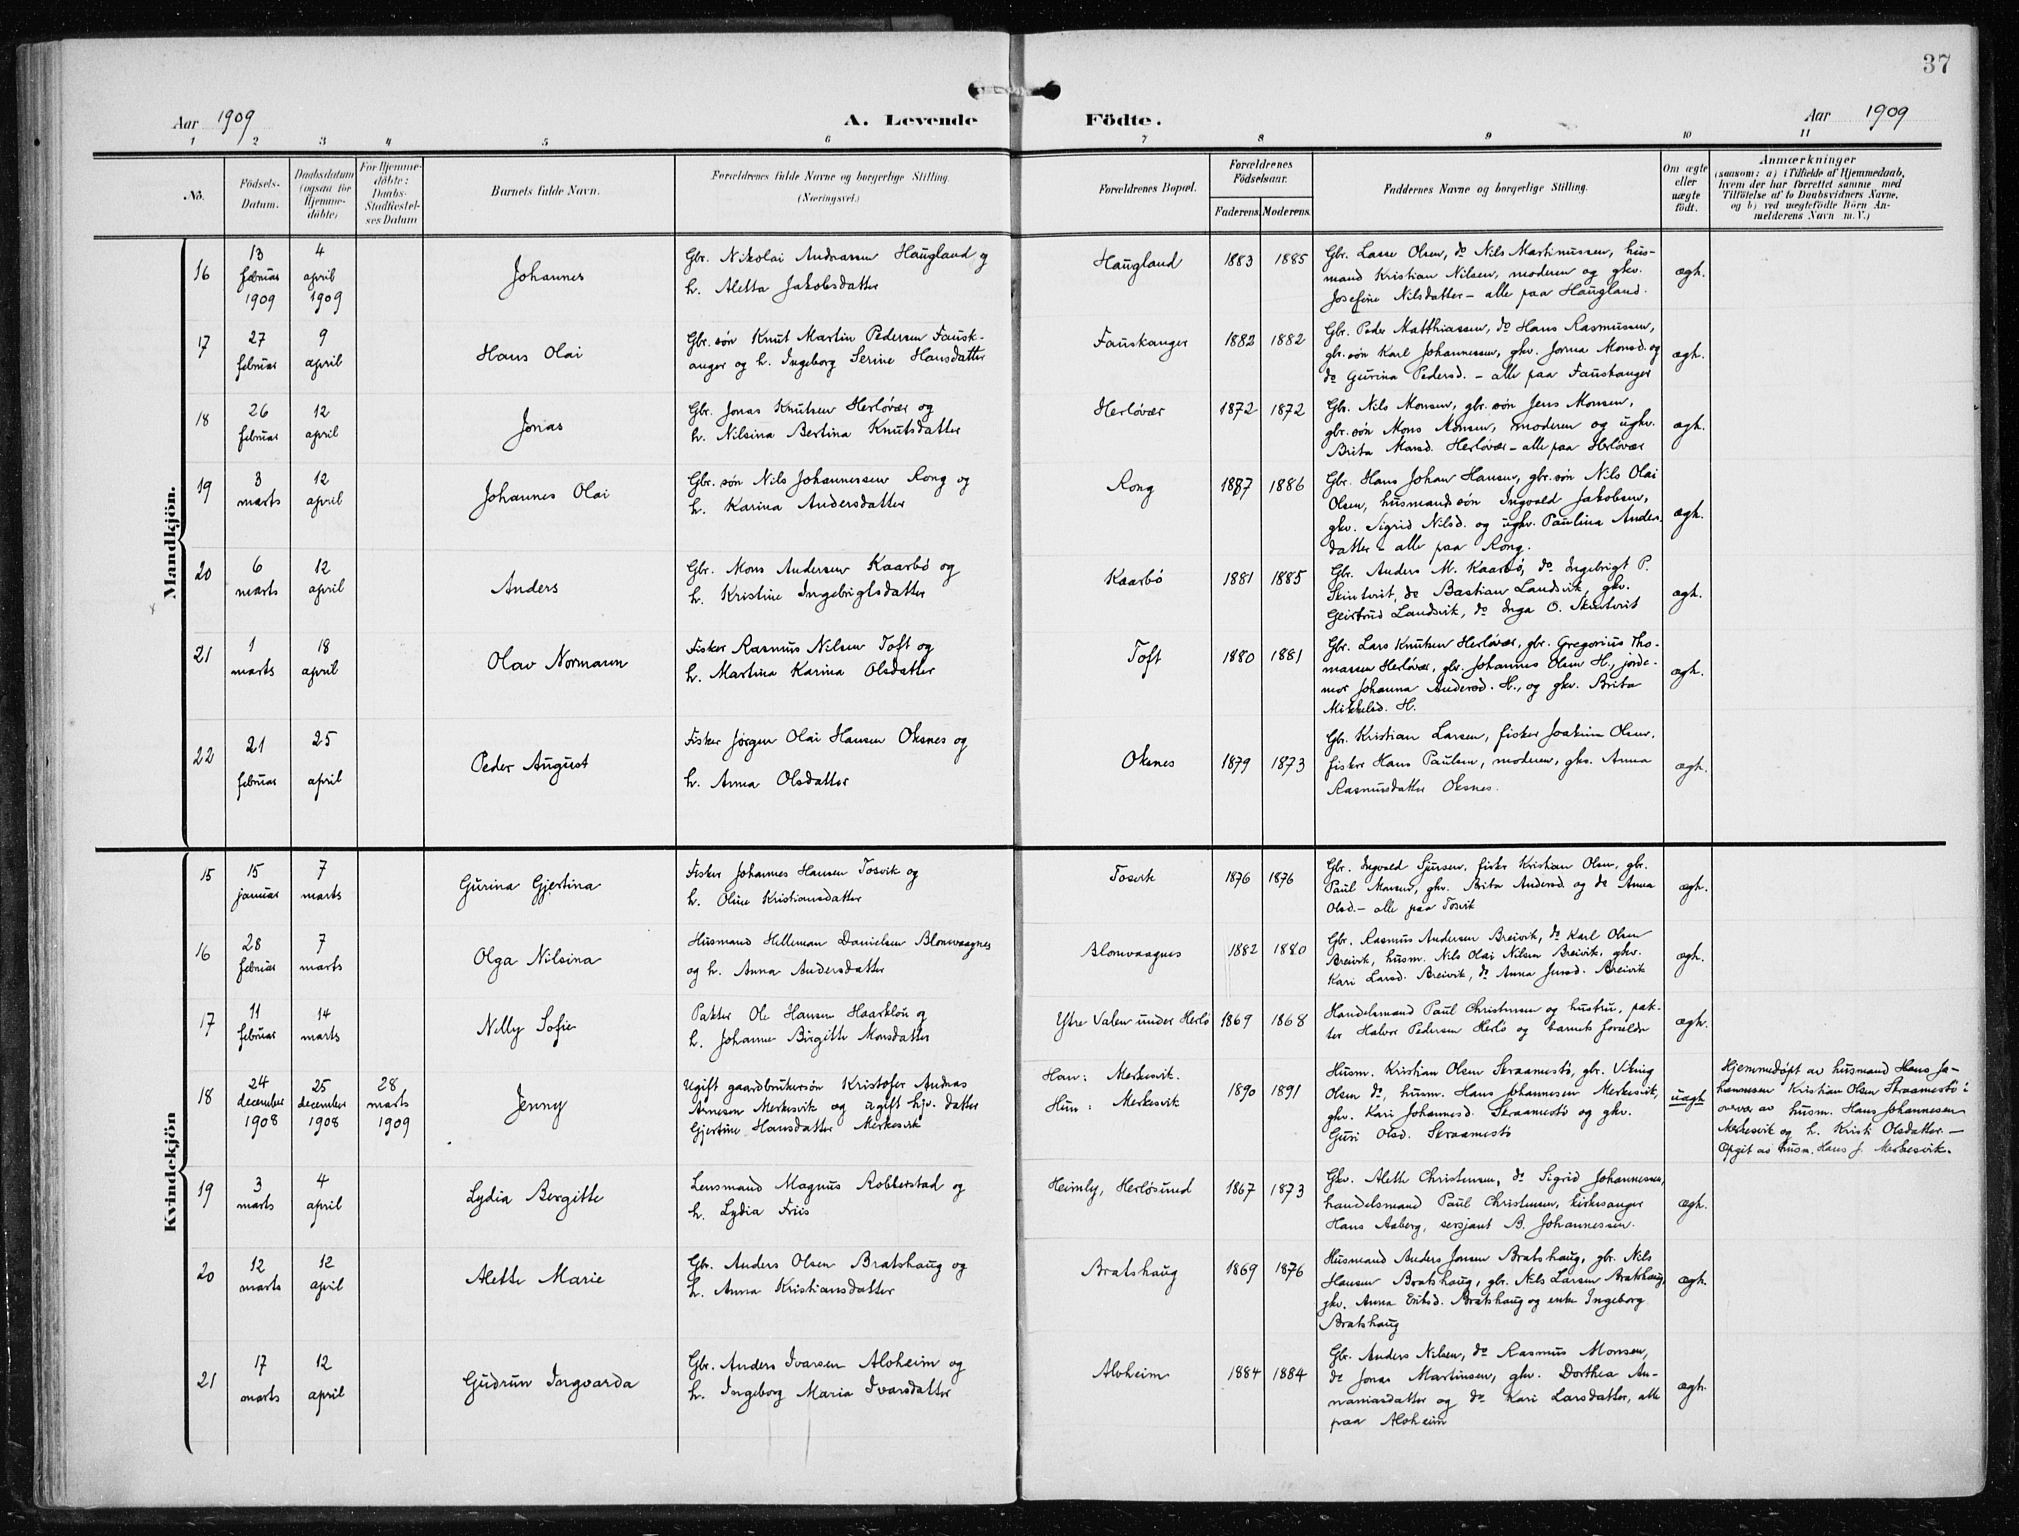 37
Aar 1909 A. Levende Födte. Aar 1909
1 2 3 4 5 6 7 8 9 10 11
No.
Födsels-
Datum.
Daabsdatum
(ogsaa for
Hjemme-
döbte)
For Hjemme-
döbte:
Daabs-
Stadfæstel-
ses Datum
Barnets fulde Navn.
Forældrenes fulde Navne og borgerlige Stilling.
(Næringsvei.)
Forældrenes Bopæl.
Forældrenes
Födselsaar.
Faderens. Moderens.
Faddernes Navne og borgerlige Stilling.
Om ægte
eller
uægte
födt.
Anmærkninger
(saasom: a) i Tilfælde af Hjemmedaab,
hvem der har forrettet samme, med
Tilföielse af to Daabsvidners Navne,
og b) ved uægtefödte Börn An-
melderens Navn m. V.)
Mandkjön.
16
13
februar
1909
4
april
1909
Johannes
Gbr. Nikolai Andreassen Haugland g
h. Aletta Jakobsdatter
Haugland
1883 1885
Gbr. Lasse Olsen, do Nils Martinussen, hus-
mand Kristian Nilsen, moderen og gkv.
Josefine Nilsdatter - alle paa Haugland.
ægh.
17
27
februar
9
april
Hans Olai
Gbr. søn Knut Martin Pedersen Fausk-
anger og h. Ingeborg Serine Hansdatter
Fauskanger
1882 1882
Gbr. Peder Matthiassen, do Hans Rasmussen,
gbr. søn Karl Johannessen, gkv. Jorina Monsd. og
do Gurina Pedersd. - alle paa Fauskanger
ægh.
18
26
februar
12
april
Jonas
Gbr. Jonas Knutsen Herløvær og
h. Nilsina Bertina Knutsdatter
Herløvær
1872 1872
Gbr. Nils Monsen, gbr. søn Jens Monsen,
gbr. søn Mons Monsen, moderen og ugkv.
Brita Monsd. Herløvær - alle paa Herløvær
ægh.
19
3
marts
12
april
Johannes Olai
Gbr. søn Nils Johannessen Rong og
h. Karina Andersdatter
Rong
1887 1886
Gbr. Hans Johan Hansen, gbr. søn Nils Olai
Olsen, husmand søn Ingvald Jakobsen,
gkv. Sigrid Nilsd. og ugkv. Paulina Anders-
datter - alle paa Rong.
ægh.
20
6
marts
12
april
Anders
Gbr. Mons Andersen Kaarbø og
h. Kristine Ingebrigtsdatter
Kaarbø
1881 1885
Gbr. Anders M. Kaarbø, do Ingebrigt P.
Skintveit, do Bastian Landsvik, gkv.
Geirtrud Landsvik, do Inga O. Skintveit
ægh.
21
1
marts
18
april
Olav Normann
Fisker Rasmus Nilsen Toft og
h. Martina Karina Olsdatter
Toft
1880 1881
Gbr. Lars Knutsen Herløvær, gbr. Gregorius Tho-
massen Herløvær, gbr. Johannes Olsen H., jorde-
mor Johanna Andersd. H., og gkv. Brita
Mikkelsd. H.
ægh.
22
21
februar
25
april
Peder August
Fisker Jørgen Olai Hansen Oksnes og
h. Anna Olsdatter
Oksnes
1879 1873
Gbr. Kristian Larsen, fisker Joakim Olsen,
fisker Hans Paulsen, moderen, gkv. Anna
Rasmusdatter Oksnes.
ægh.
Kvindekjön
15
15
januar
7
marts
Gurina Gjertina
Fisker Johannes Hansen Tosvik og
h. Oline Kristiansdatter
Tosvik
1876 1876
Gbr. Ingvald Sjursen, fisker Kristian Olsen, gbr.
Paul Monsen, gkv. Brita Andersd. og do Anna
Olsd. - alle paa Tosvik
ægh.
16
28
februar
7
marts
Olga Nilsina
Husmand Helleman Danielsen Blomvaagnes
og h. Anna Andersdatter
Blomvaagnes
1882 1880
Gbr. Rasmus Andersen Breivik, do Karl Olsen
Breivik, husm. Nils Olai Nilsen Breivik, gkv.
Kari Larsd. Breivik, do Anna Jensd. Breivik
ægh.
17
11
februar
14
marts
Nelly Sofie
Pakter Ole Hansen Haarklou og
h. Johanne Birgitte Monsdatter
Ytre Valen under Herlø
1869 1868
Handelsmand Paul Christensen og hustru, pak-
ter Halvor Pedersen Herlø og barnets forældre
ægh.
18
24
december
1908
25
december
1908
28
marts
1909
Jenny
Ugift gaardbrukersøn Kristofer Andreas
Arnesen Merkesvik og ugift hj. datter
Gjertine Hansdatter Merkesvik
Han: Merkesvik.
Hun: Merkesvik
1890 1891
Husm. Kristian Olsen Skraamestø, gbr. Viking
Olsen do, husm. Hans Johannesen Merkesvik,
gkv. Kari Johannesd. Skraamestø og gkv.
Guri Olsd. Skraamestø
uægh
Hjemmedøpt av husmand Hans Jo-
hannessen Kristian Olsen Skraamestø i
overvær av husm. Hans Johannesen
Merkesvik og h. Kristi Olsdatter. -
Opgit av husm. Hans J. Merkesvik.
19
3
marts
4
april
Lydia Bergitte
Lensmand Magnus Robberstad og
h. Lydia Friis
Heimly, Herløsund
1867 1873
Gkv. Alette Christensen, do Sigrid Johannesen,
handelsmand Paul Christensen, kirkesanger
Hans Aaberg, sersjant B. Johannessen.
ægh.
20
12
marts
12
april
Alette Marie
Gbr. Anders Olsen Bratshaug og
h. Anna Kristiansdatter
Bratshaug
1869 1876
Husmand Anders Jonsen Bratshaug, gbr. Nils
Hansen Bratshaug, gbr. Nils Larsen Bratshaug,
gkv. Anna Eriksd. Bratshaug og enke Ingeborg
Bratshaug
ægh.
21
17
marts
12
april
Gudrun Ingvarda
Gbr. Anders Ivarsen Alvheim og
h. Ingeborg Maria Ivarsdatter
Alvheim
1884 1884
Gbr. Anders Nilsen, do Rasmus Monsen,
do Jonas Martinsen, gkv. Dorthea An-
naniasdatter og do Kari Larsdatter, alle
paa Alvheim
ægh.